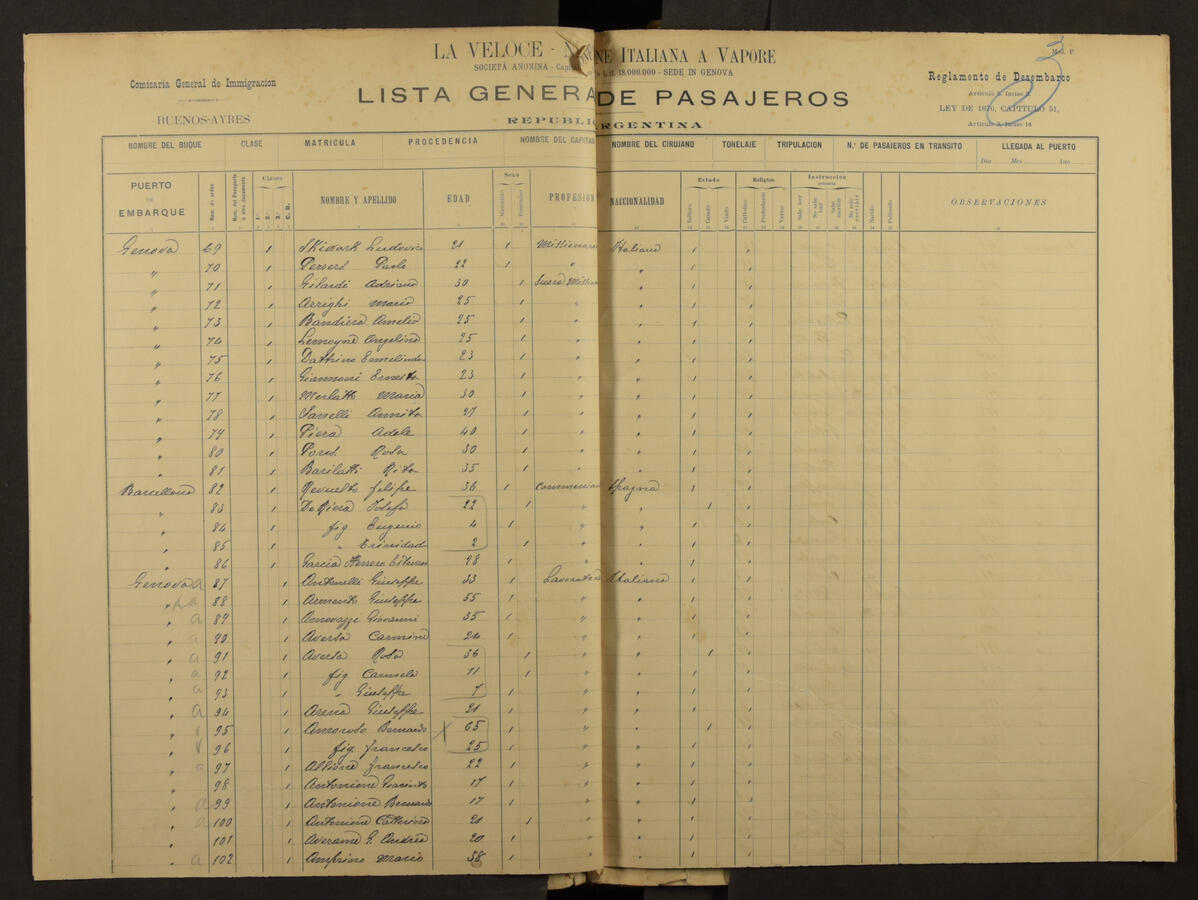 LA VELOCE - N NE ITALIANA A VAPORE
SOCIETÁ ANONINA - Capit Lit. 18.000.000 - SEDE IN GENOVA
Mod. P.
3
Comisaria General de Immigracion
BUENOS-AYRES
LISTA GENERA DE PASAJEROS
REPUBLIC ARGENTINA
Reglamento de Desembarco
LEY DE 1876, CAPITULO 51,
Articulo 3, Inciso 14
NOMBRE DEL BUQUE CLASE MATRICULA PROCEDENCIA NOMBRE DEL CAPITAN NOMBRE DEL CIRUJANO TONELAJE TRIPULACION N.º DE PASAJEROS EN TRANSITO LLEGADA AL PUERTO
Dia Mes Ano
PUERTO DE EMBARQUE Num. de orden Num. del Pasaporte ó otro documento Clases 1.ª 2.ª 3.ª C. D. NOMBRE Y APELLIDO EDAD Sexo Masculino Femenino PROFESION NACCIONALIDAD Estado Soltero Casado Viudo Religion Catholico Protestante Varios Instruccion primaria Sabe leer No sabe leer Sabe escribir No sabe escribir Nacido Fallecido OBSERVACIONES
Genova 69 1 Ludovico 21 1 Missionario Italiana 1 1
" 70 1 Paolo 22 1 " " 1 1
" 71 1 Gilardi Adriana 30 1 Suora Mission " 1 1
" 72 1 Arrighi Maria 25 1 " " 1 1
" 73 1 Bandiera Amelia 25 1 " " 1 1
" 74 1 Lemoyne Angelina 25 1 " " 1 1
" 75 1 Dattrino Ermelinda 23 1 " " 1 1
" 76 1 Giannoni Ernesta 23 1 " " 1 1
" 77 1 Merlatti Maria 30 1 " " 1 1
" 78 1 Annita 27 1 " " 1 1
" 79 1 Piera Adele 40 1 " " 1 1
" 80 1 Rosa 30 1 " " 1 1
" 81 1 Barilatti Rita 35 1 " " 1 1
Barcellona 82 1 Revuelto Felipe 36 1 Commercian Spagna 1 1
" 83 1 De Riera Josefa 22 1 " " 1 1
" 84 1 fig Eugenio 4 1 " " 1 1
" 85 1 " Trinidad 2 1 " " 1 1
" 86 1 Garcia Herrero Esteban 28 1 " " 1 1
Genova a 87 1 Antonelli Giuseppe 33 1 Lavorator Italiana 1 1
" a 88 1 Armento Giuseppe 55 1 " " 1 1
" a 89 1 Amovazzi Giovanni 35 1 " " 1 1
" a 90 1 Aversa Carmine 1 " " 1 1
" a 91 1 Aversa Rosa 36 1 " " 1 1
" a 92 1 fig Carmela 11 1 " " 1 1
" a 93 1 " Giuseppe 7 1 " " 1 1
" a 94 1 Arena Giuseppe 21 1 " " 1 1
" 95 1 Amoroso Bernardo X 65 1 " " 1 1
" 96 1 fig. Francesco 25 1 " " 1 1
" a 97 1 Allione Francesco 22 1 " " 1 1
" 98 1 Antonione Giacinto 17 1 " " 1 1
" a 99 1 Antonione Bernardo 17 1 " " 1 1
" a 100 1 Antonione Catterina 21 1 " " 1 1
" 101 1 Averame G. Andrea 20 1 " " 1 1
" a 102 1 Amprino Mario 38 1 " " 1 1